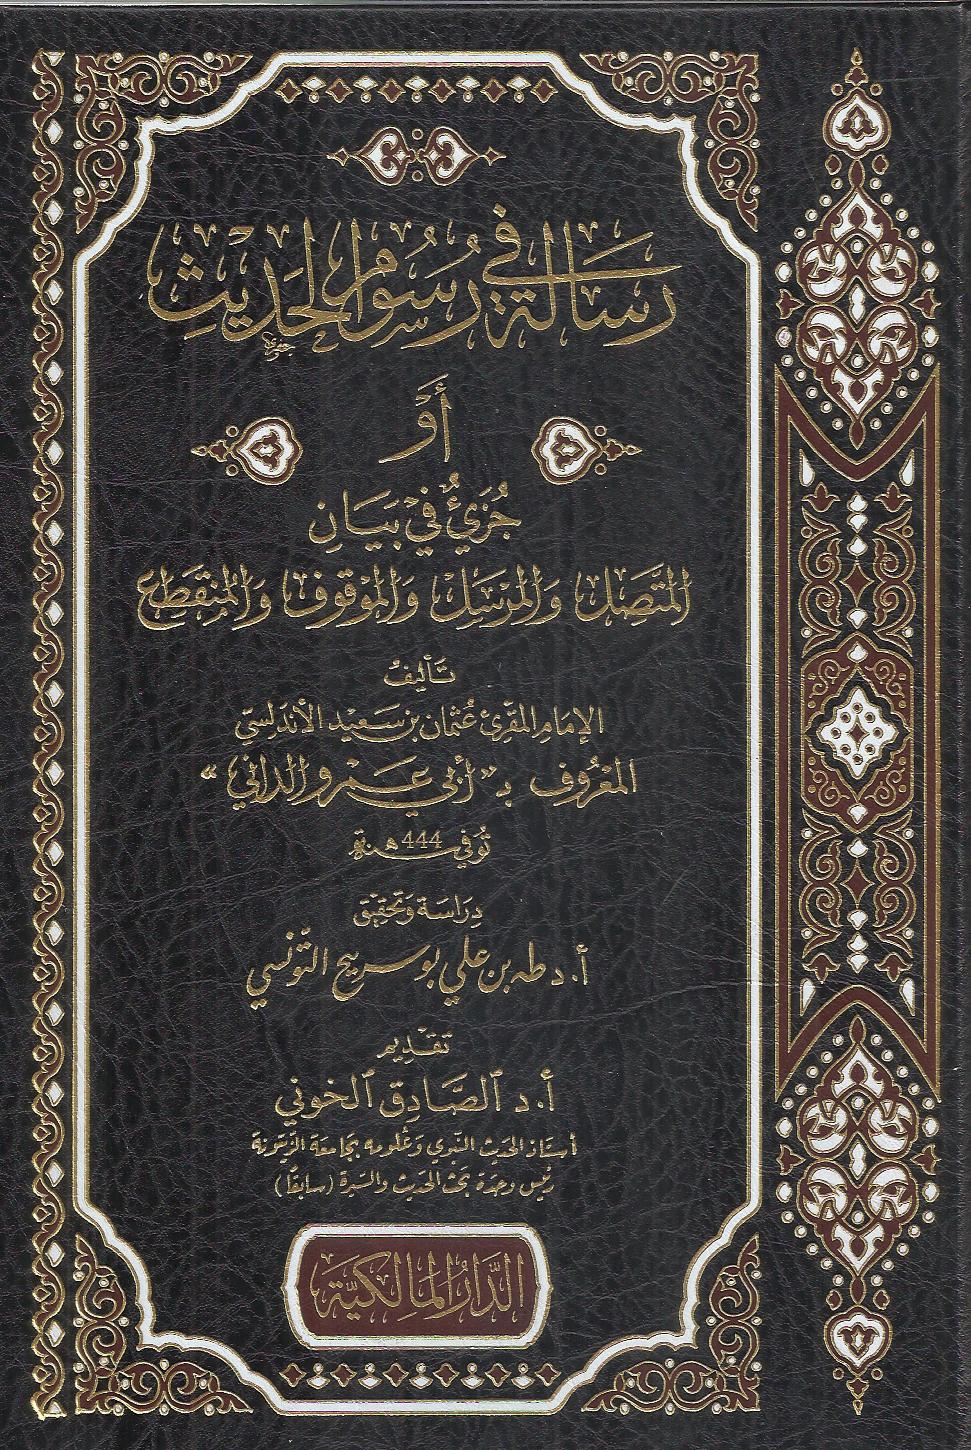 رسالة في رسوم الحديث
أو
جزئ في بيان
المتصل والمرسل والموقوف والمنقطع
تأليف
الإمام المقرئ عثمان بن سعيد الأندلسي
المعروف بـ "أبي عمرو الداني"
توفي سنة 444هـ
دراسة وتحقيق
أ.د طه بن علي بوسريح التونسي
تقديم
أ.د الصادق الخوني
أستاذ الحديث النبوي وعلومه بجامعة الزيتونة
رئيس وحدة بحث الحديث والسيرة (سابقا)
الدار المالكية